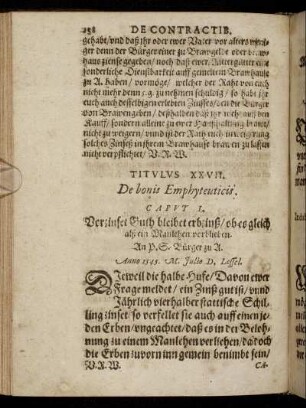 238 DE CONTRACTIB.
gehabt/vnd daß jhr oder ewer Vater vor alters
denn der Bürger einer zu Brawgelt oder
hauszienſe gegeben/ noch daß ewer Rittergüter eine
ſonderliche Dienſtbarkeit auff gemeinem Brawhauſe
zu A. haben/ vermöge/ welcher der Raht von euch
nicht mehr denn 5. g. zunehmen ſchuldig/ ſo habt jhr
euch auch desſelbigen erlebten Zinſſes/ den die Bürger
von Brawen geben/ deßhalben daß jhr nicht auff den
Kauff/ ſondern alleine zu ewer Haußhaltung brawt/
nicht zu wegern/ vnnd iſt der Rath euch in wegerung
ſolches Zinſes in jhrem Brawhauſe brawen zu laſſen
nicht verpflichtet/ V. R. W.
TITVLVS XXVII.
De bonis Emphyteuticis.
CAPVT I.
Verzinſet Guth bleibet erbzinß/ ob es gleich
alß ein Manlehen verliehen.
An P. S. Bürger zu A.
Anno 1545. M. Julio D. Laſſel.
DIeweil die halbe Hufe/ Davon ewer
Frage meldet/ ein Zinßgut iſt/ vnnd
Jährlich vierhalber ſtattiſche Schil-
ling zinſet/ ſo verfellet ſie auch auff einen je-
den Erben/ vngeachtet/ daß es in der Beleh-
nung zu einem Manlehen verliehen/ da doch
die Erben zuvorn inn gemein benimbt ſein/
V. R. W.
CA-